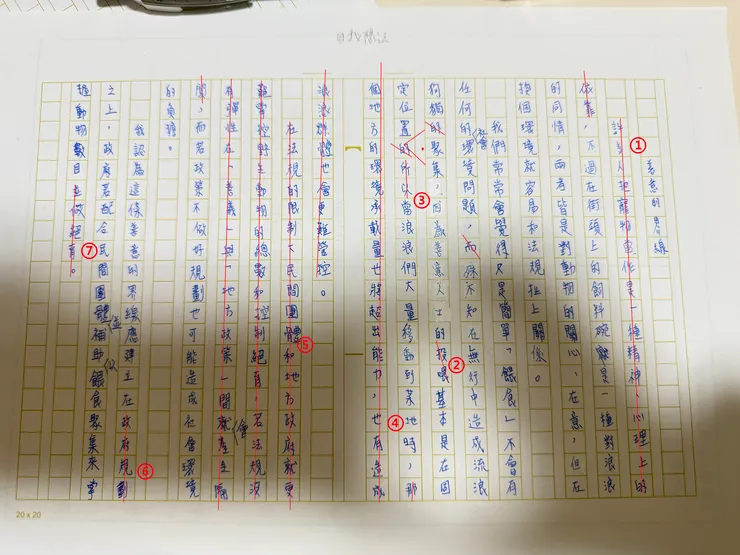 自我關注
善意的界線
許多人把寵物當作是一種精神、心理上的
依靠,不過在街頭上的飼料碗就是一種對浪浪
的同情,兩者皆是對動物的關心、在意,但在
換個環境就容易和法規扯上關係。
我們常常會覺得只是簡單「餵食」不會有
任何的環境問題,而殊不知在無行中造成流浪
狗貓的聚集,因為善意人士的投喂基本是在固
定位置的,所以當浪浪們大量移動到某地時,那
個地方的環境承載量也將超出能力,也有造成
浪浪燃燒也會更難管控。
在法規的限制大民間團體和地方政府就更
難掌控野生動物的總數和控制絕育,若法規沒
有彈性在「善義」與「地方政策」間就產生隔
閡,而若政策不做好規劃也可能造成社會環境
的負擔。
我認為這條善意的界線應建立在政府規劃
之上,政府若配合民間團體補助餵食聚集來掌
握動物數目並做絕育。
①
②
③
④
⑤
⑥
⑦
會
20 x 20